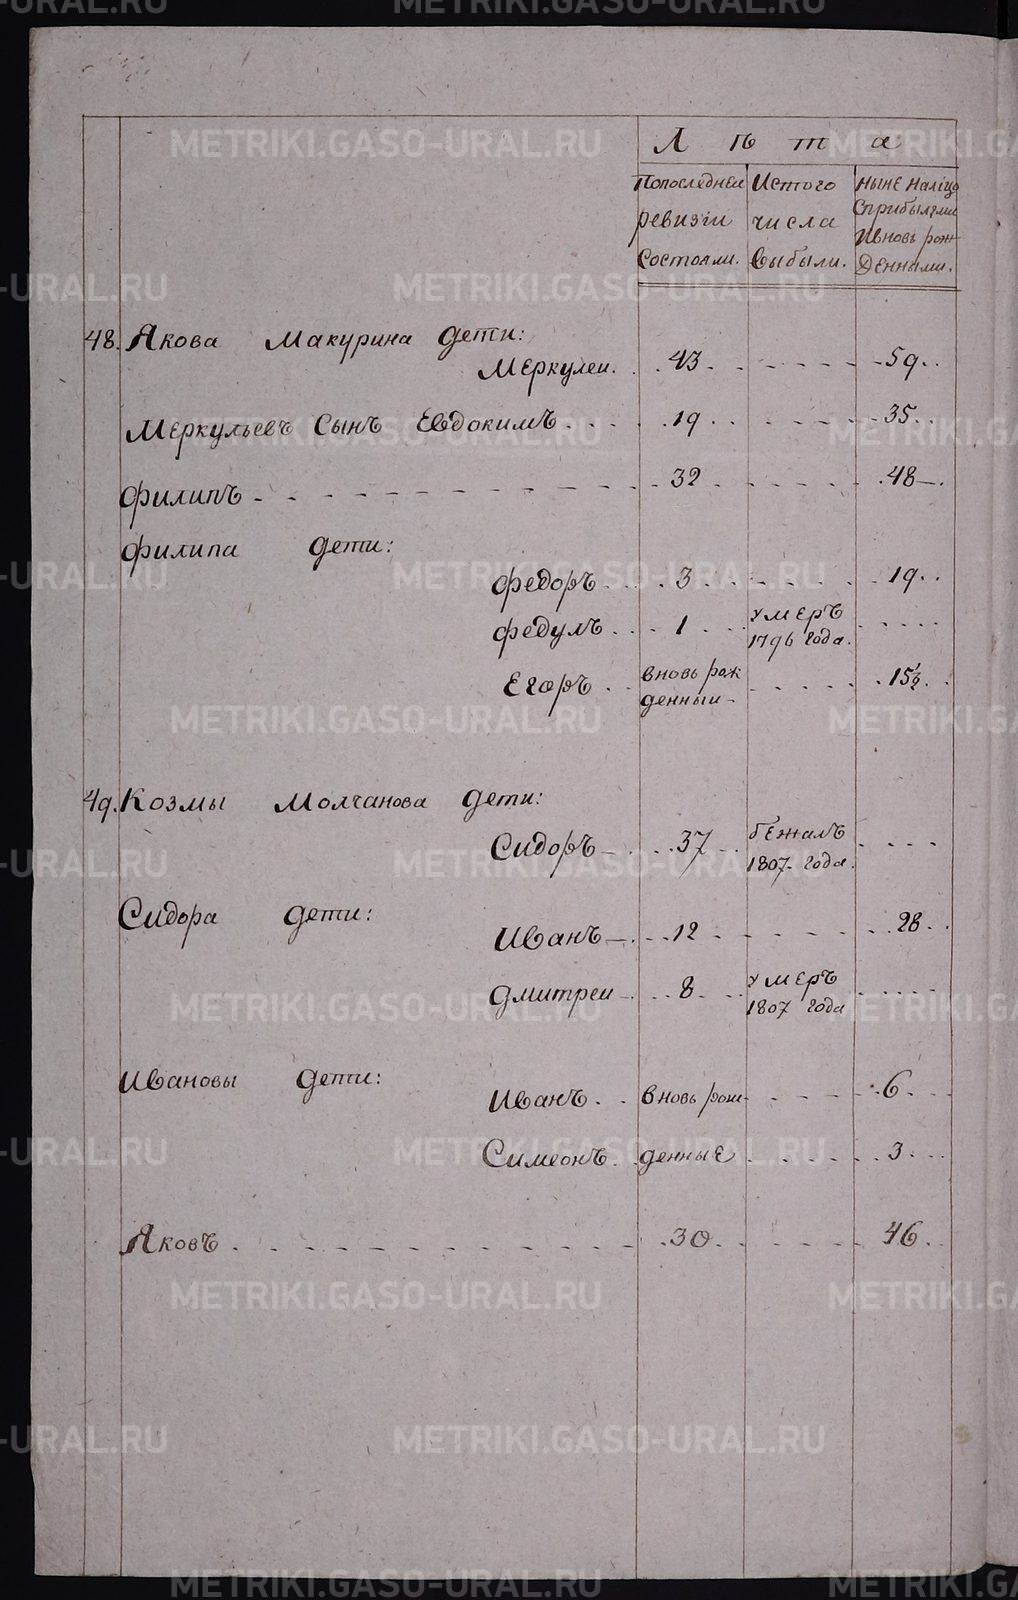 Лѣта
Попоследней ревизіи состояли.
Ис того числа выбыли.
Ныне налицо сприбылеми Ивновь рожденными.
48. Якова Макурина дети:
Меркулеи. 43. 59.
Меркульевъ Сынъ Евдокимъ 19. 35.
Филипъ 32. 48.
Филипа дети:
Федоръ 3. 19.
Федулъ 1 умеръ 1796 года.
Егоръ вновь рожденныи 15½.
49. Козмы Молчанова дети:
Сидоръ 37 бежалъ 1807 года.
Сидора дети:
Иванъ 12. 28.
Дмитреи 8 умеръ 1807 года
Ивановы дети:
Иванъ вновь рож- 6.
Симеонъ денные 3.
Яковъ 30. 46.
METRIKI.GASO-URAL.RU